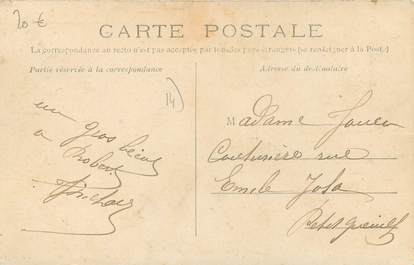 20 €
CARTE POSTALE
La correspondance au recto n'est pas acceptée par tous les pays étrangers (se renseigner à la Poste.)
Partie réservée à la correspondance
Adresse du destinataire
14)
un Gros
a Robert
Madame
Couturière rue
Emile Zola
Petit Quevilly